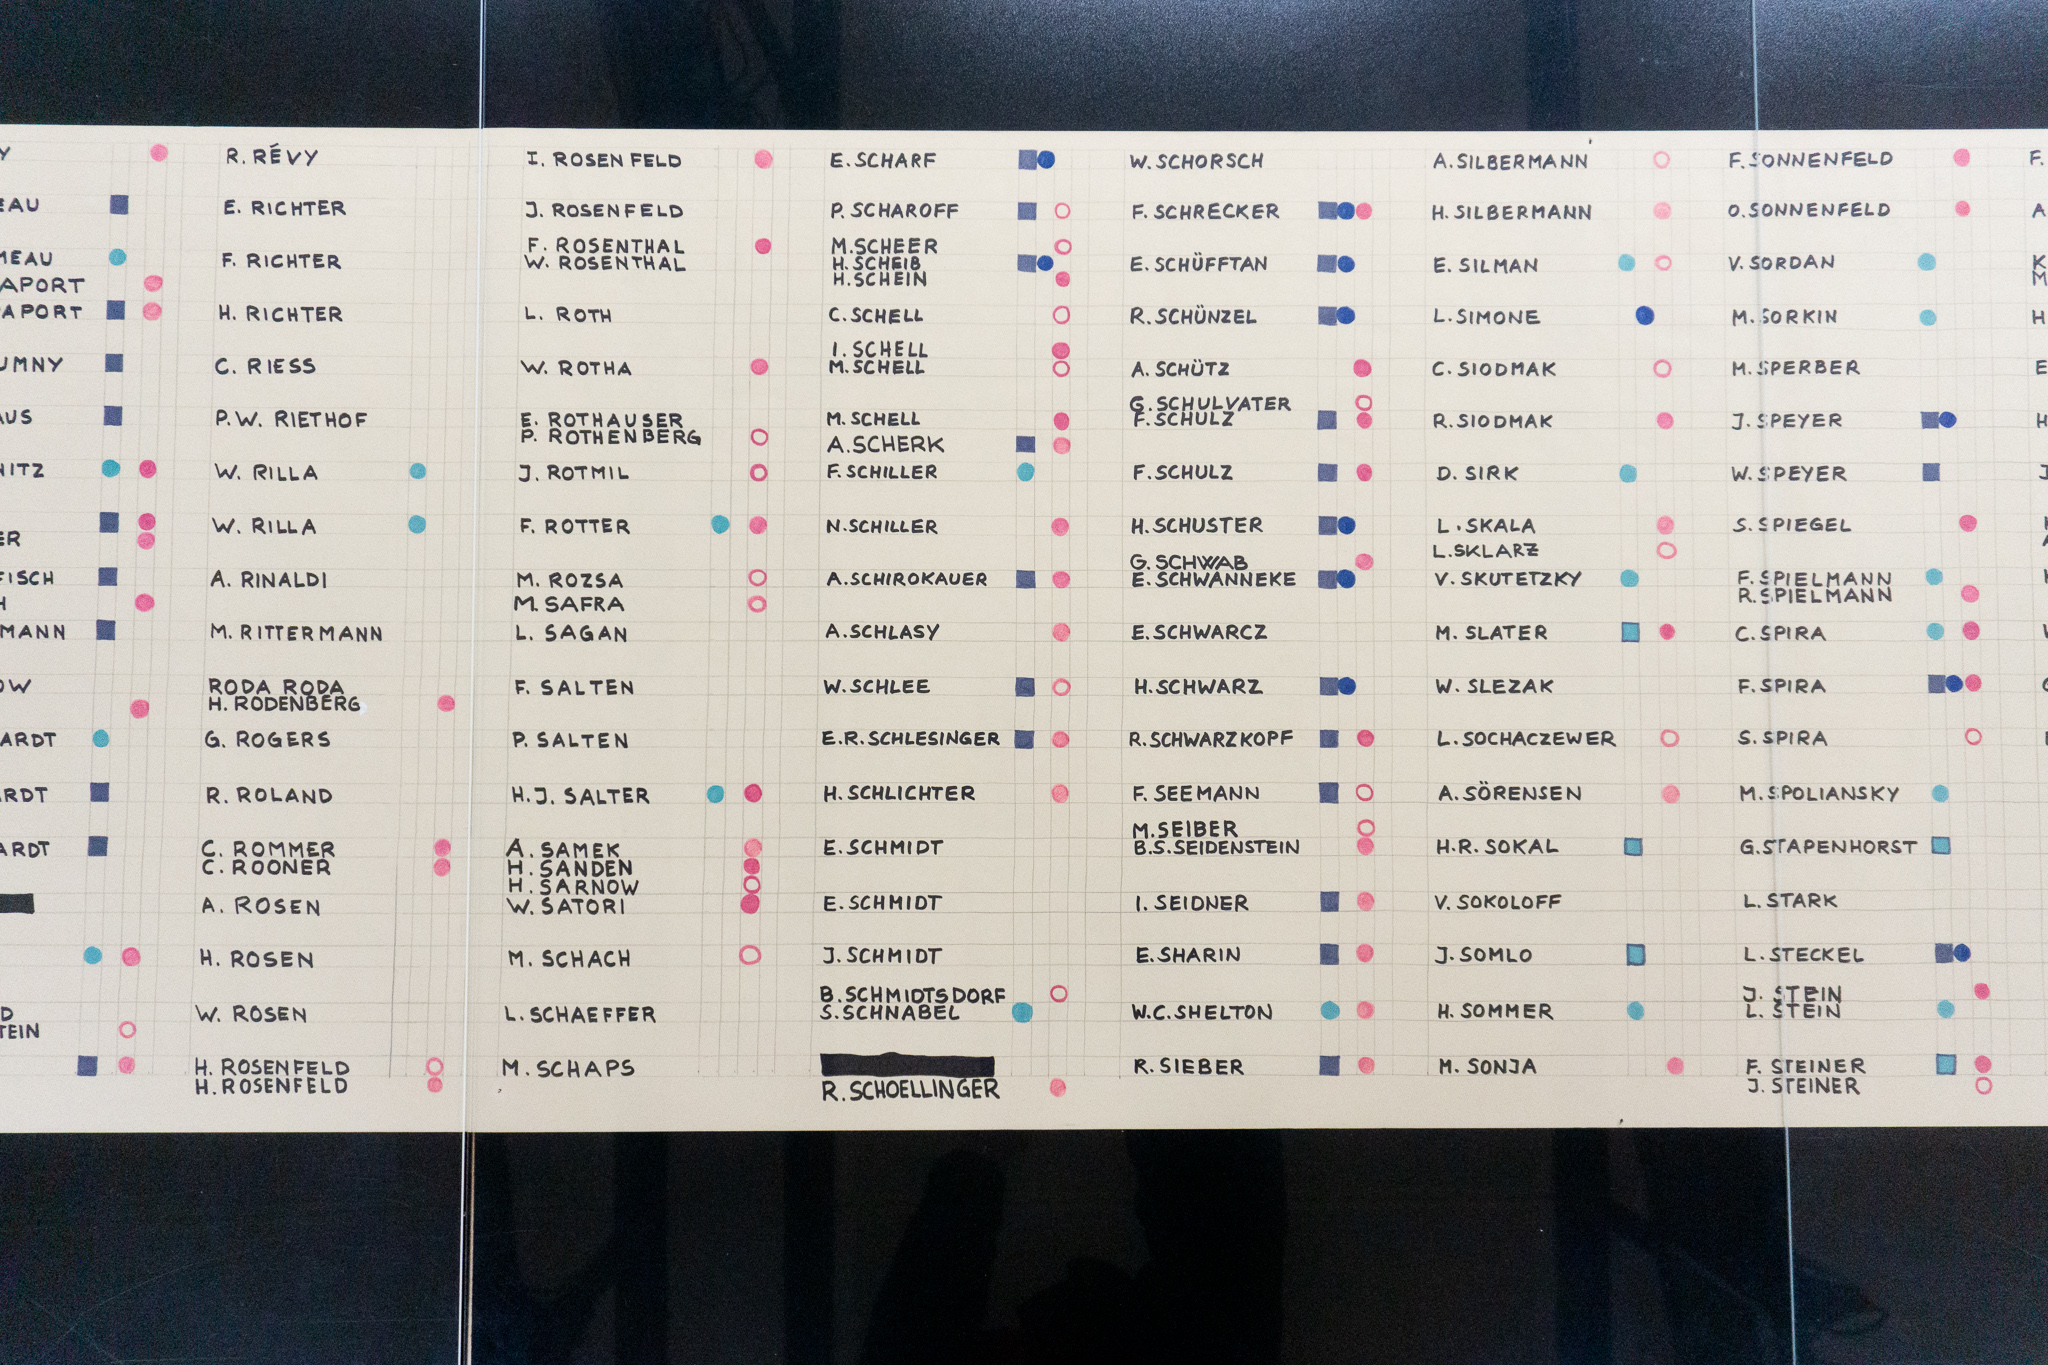 Y
EAU
MEAU
APORT
APORT
UMNY
AUS
NITZ
ER
FISCH
H
MANN
OW
ARDT
ARDT
ARDT
D
TEIN
R. RÉVY
E. RICHTER
F. RICHTER
H. RICHTER
C. RIESS
P.W. RIETHOF
W. RILLA
W. RILLA
A. RINALDI
M. RITTERMANN
RODA RODA
H. RODENBERG
G. ROGERS
R. ROLAND
C. ROMMER
C. ROONER
A. ROSEN
H. ROSEN
W. ROSEN
H. ROSENFELD
H. ROSENFELD
I. ROSENFELD
J. ROSENFELD
F. ROSENTHAL
W. ROSENTHAL
L. ROTH
W. ROTHA
E. ROTHAUSER
P. ROTHENBERG
J. ROTMIL
F. ROTTER
M. ROZSA
M. SAFRA
L. SAGAN
F. SALTEN
P. SALTEN
H.J. SALTER
A. SAMEK
H. SANDEN
H. SARNOW
W. SATORI
M. SCHACH
L. SCHAEFFER
M. SCHAPS
E. SCHARF
P. SCHAROFF
M. SCHEER
H. SCHEIB
H. SCHEIN
C. SCHELL
I. SCHELL
M. SCHELL
M. SCHELL
A. SCHERK
F. SCHILLER
N. SCHILLER
A. SCHIROKAUER
A. SCHLASY
W. SCHLEE
E.R. SCHLESINGER
H. SCHLICHTER
E. SCHMIDT
E. SCHMIDT
J. SCHMIDT
B. SCHMIDTSDORF
S. SCHNABEL
R. SCHOELLINGER
W. SCHORSCH
F. SCHRECKER
E. SCHÜFFTAN
R. SCHÜNZEL
A. SCHÜTZ
G. SCHULVATER
F. SCHULZ
F. SCHULZ
H. SCHUSTER
G. SCHWAB
E. SCHWANNEKE
E. SCHWARCZ
H. SCHWARZ
R. SCHWARZKOPF
F. SEEMANN
M. SEIBER
B.S. SEIDENSTEIN
I. SEIDNER
E. SHARIN
W.C. SHELTON
R. SIEBER
A. SILBERMANN
H. SILBERMANN
E. SILMAN
L. SIMONE
C. SIODMAK
R. SIODMAK
D. SIRK
L. SKALA
L. SKLARZ
V. SKUTETZKY
M. SLATER
W. SLEZAK
L. SOCHACZEWER
A. SÖRENSEN
H.R. SOKAL
V. SOKOLOFF
J. SOMLO
H. SOMMER
M. SONJA
F. SONNENFELD
O. SONNENFELD
V. SORDAN
M. SORKIN
M. SPERBER
J. SPEYER
W. SPEYER
S. SPIEGEL
F. SPIELMANN
R. SPIELMANN
C. SPIRA
F. SPIRA
S. SPIRA
M. SPOLIANSKY
G. STAPENHORST
L. STARK
L. STECKEL
J. STEIN
L. STEIN
F. STEINER
J. STEINER
F.
A
K
M
H
E
H
J